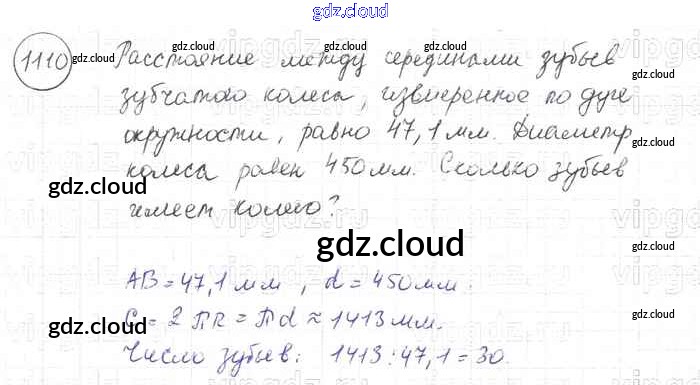 gdz.cloud
1110 Расстояние между серединами зубьев
зубчатого колеса, измеренное по дуге
окружности, равно 47,1 мм. Диаметр
колеса равен 450мм. Сколько зубьев
имеет колесо?
AB = 47,1 мм , d = 450мм.
C = 2 πR = πd ≈ 1413 мм.
Число зубьев: 1413 : 47,1 = 30.
gdz.cloud
gdz.cloud
gdz.cloud
gdz.cloud
gdz.cloud
gdz.cloud
gdz.cloud
gdz.cloud
gdz.cloud
gdz.cloud
gdz.cloud
gdz.cloud